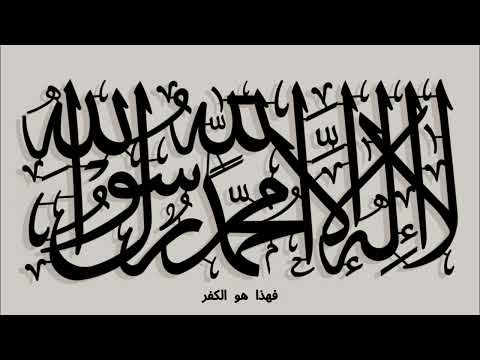 لا إله إلا الله محمد رسول الله
فهذا هو الكفر